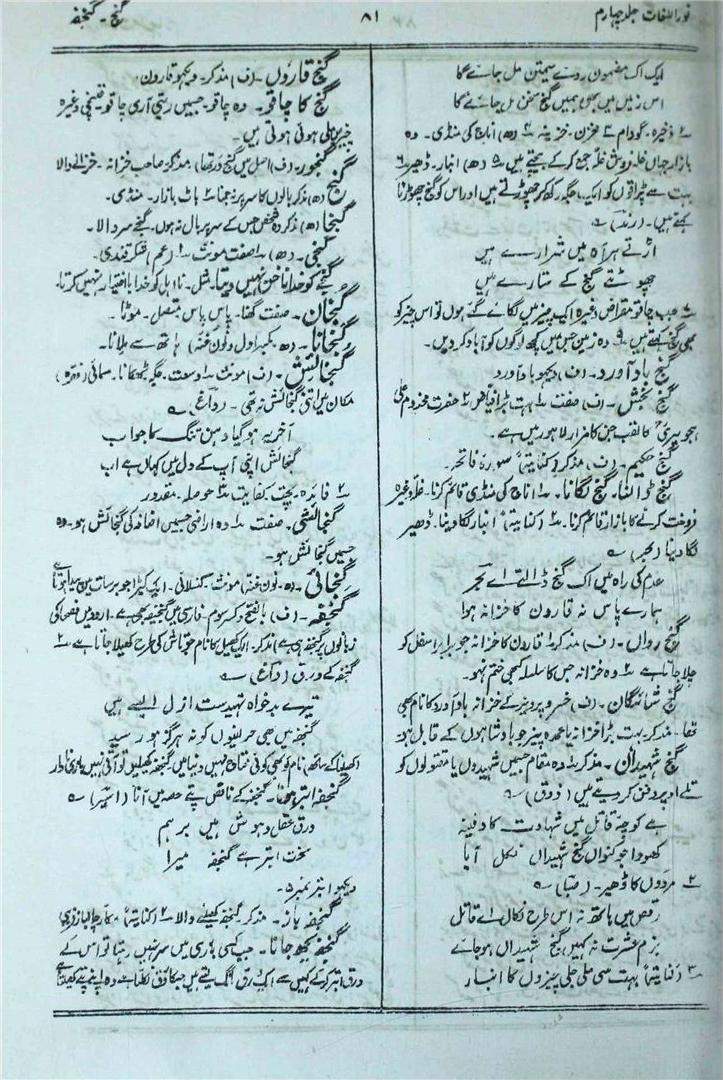 نور اللغات جلد چہارم
۸۱
گنج ۔ گنجفہ
ایک اک مضمون روئے سیمتن مل جائے گا
اس زمیں میں بھی ہمیں گنج سخن مل جائے گا
۳ ذخیرہ۔ گودام ۳ مخزن۔ خزینہ ۴ (ھ) اناج کی منڈی۔ وہ
بازار جہاں غلہ فروش غلہ جمع کرکے بیچتے ہیں ۵ (ھ) انبار۔ ڈھیر ۶
بہت سے پٹاقوں کو ایک جگہ رکھ کر چھوڑتے ہیں اور اس کو گنج چھوڑنا
کہتے ہیں۔ (رند) ؎
اڑتے ہر آہ میں شرارے ہیں
چھوٹتے گنج کے ستارے ہیں
جب چاقو مقراض وغیرہ ایک چیز میں لگائے گئے ہوں تو اس چیز کو
بھی گنج کہتے ہیں۔ ۹ وہ زمین جس میں کچھ لوگوں کو آباد کر دیں۔
گنج باد آورد۔ (ف) دیکھو باد آورد
گنج بخش۔ (ف) صفت ۱ بہت بڑا فیاض ۲ حضرت مخدوم علی
ہجویری کا لقب جن کا مزار لاہور میں ہے۔
گنج حکیم۔ (ف) مذکر (کنایتہً) سورۂ فاتحہ۔
گنج ڈالنا۔ گنج لگانا۔ ۱ اناج کی منڈی قائم کرنا۔ غلہ وغیرہ
فروخت کرنے کا بازار قائم کرنا۔ ۲ (کنایتہً) انبار لگا دینا۔ ڈھیر
لگا دینا (بحر) ؎
عدم کی راہ میں اک گنج ڈالتے اے بحر
ہمارے پاس نہ قارون کا خزانہ ہوا
گنج رواں۔ (ف) مذکر ۱ قارون کا خزانہ جو برابر اسفل کو
چلا جاتا ہے ۲ وہ خزانہ جس کا سلسلہ کبھی ختم نہو۔
گنج شائگان۔ (ف) خسرو پرویز کے خزانہ باد آورد کا نام بھی
تھا۔ مذکر بہت بڑا خزانہ یا عمدہ چیز جو بادشاہوں کے قابل ہو۔
گنج شہیداں۔ مذکر ۱ وہ مقام جہیں شہیدوں یا مقتولوں کو
تلے اوپر دفن کر دیتے ہیں (ذوق) ؎
ہے کوچۂ قاتل میں شہادت کا دفینہ
کھودا جو کنواں گنج شہیداں نکل آیا
۲ مردوں کا ڈھیر۔ (صبا) ؎
رقص میں ہاتھ نہ اس طرح نکال اے قاتل
بزم عشرت نہ کہیں گنج شہیداں ہو جائے
۳ (کنایتہً) بہت سی ملی جلی چیزوں کا انبار
گنج قاروں۔ (ف) مذکر۔ دیکھو قارون۔
گنج کا چاقو۔ وہ چاقو۔ جسیں ریتی آری چاقو قینچی وغیرہ
چیزیں ملی ہوئی ہوتی ہیں۔
گنجور۔ (ف) اصل میں گنج ور تھا) مذکر۔ صاحب خزانہ۔ خزانے والا
گنج (ھ) مذکر بالوں کا سر پر نہ جمنا ۲ ہاٹ بازار۔ منڈی۔
گنجا (ھ) مذکر وہ شخص جس کے سر پر بال نہ ہوں۔ گنجے سر والا۔
گنجی۔ (ھ) ۱ صفت مونث ۲ (عم) شکر قندی۔
گنجے کو خدا ناخن نہیں دیتا۔ مثل۔ نا اہل کو خدا با اختیار نہیں کرتا۔
گنجان۔ صفت گھنا۔ پاس پاس متصل۔ موٹا۔
گنجانا۔ (ھ۔ بکسر اول و نون غنہ) ہاتھ سے ملانا۔
گنجائش۔ (ف) مونث ۱ وسعت۔ جگہ ٹھکانا۔ سمائی (فقرہ)
مکان میں اتنی گنجائش نہ تھی۔ (داغ) ؎
آخر یہ ہو گیا دہن تنگ کا جواب
گنجائش اپنی آپ کے دل میں کہاں ہے اب
۲ فائدہ۔ بچت۔ کفایت ۳ حوصلہ۔ مقدور
گنجائشی۔ صفت ۱ وہ اراضی جسمیں اضافہ کی گنجائش ہو۔ وہ
جسمیں گنجائش ہو۔
گنجائی (ھ۔ نون غنہ) مونث۔ کنسلائی۔ ایک کیڑا جو برسات میں پیدا ہوتا ہے
گنجفہ۔ (ف) بالفتح و کسر سوم۔ فارسی میں گنجیفہ بھی ہے۔ اردو میں فصحا کی
زبانوں پر گنجفہ ہی ہے) مذکر۔ ایک کھیل کا نام جو تاش کی طرح کھیلا جاتا ہے ۲
گنجفہ کے ورق (داغ) ؎
تیرے بدخواہ تہیدست ازل ایسے ہیں
گنجفہ میں بھی حریفوں کو نہ ہرگز ہو رسید
(کھیلنا کے ساتھ) نام کو بھی کوئی محتاج نہیں دنیا میں گنجفہ کھیلیں تو آتی نہیں بازی نادار
گنجفہ ابتر ہونا۔ گنجفہ کے ناقص پتے حصہ میں آنا (اسیر) ؎
ورق عقل و ہوش ہیں برہم
سخت ابتر ہے گنجفہ میرا
دیکھو ابتر نمبر ۵۔
گنجفہ باز۔ مذکر گنجفہ کھیلنے والا ۲ (کنایتہً) مکار چالباز فریبی
گنجفہ بجھ جانا۔ جب کسی بازی میں سر نہیں رہتا تو اس کے
ورق ابتر کرکے کہیں سے ایک رق مانگ لیتے ہیں جسکا ورق نکلتا ہے وہ اپنے پتے کھیلتا ہے